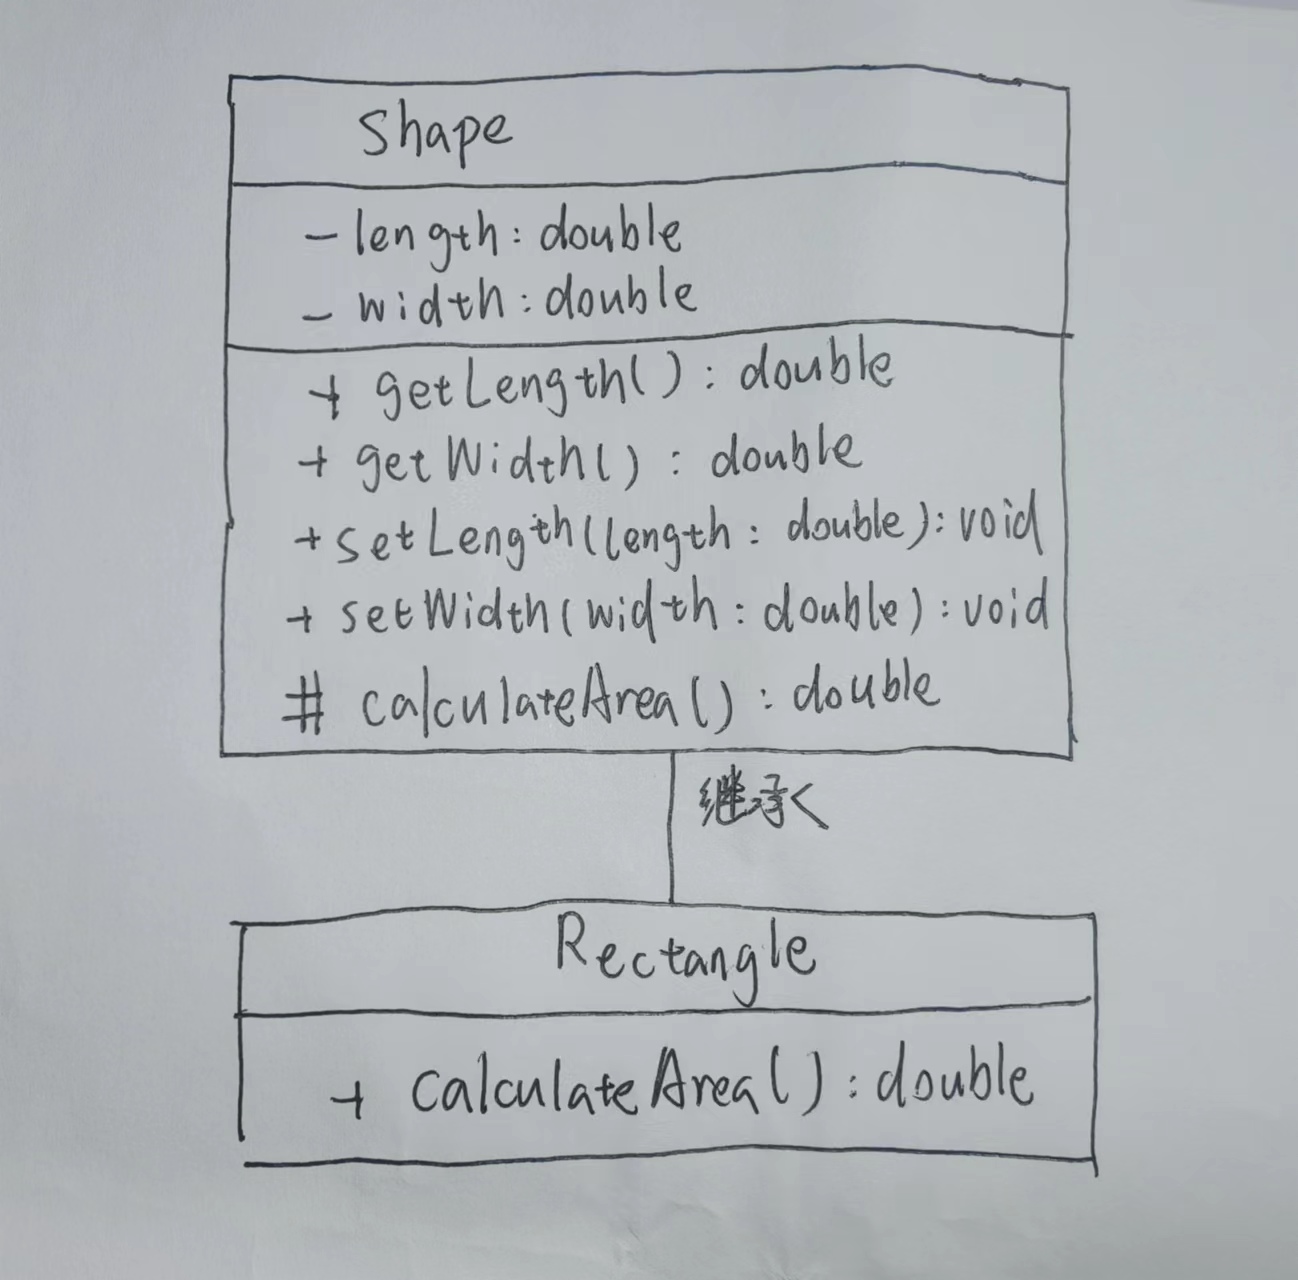 Shape
- length : double
- width : double
+ getLength() : double
+ getWidth() : double
+ setLength(length : double) : void
+ setWidth(width : double) : void
# calculateArea() : double
继承
Rectangle
+ calculateArea() : double